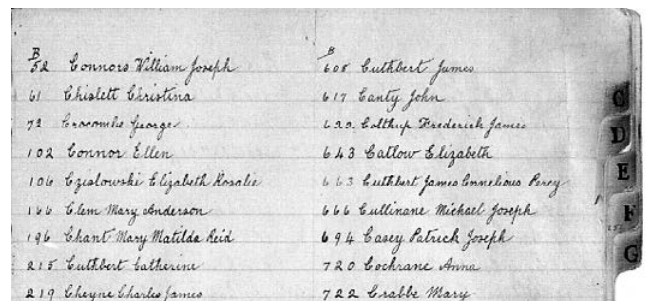 B
52 Connors William Joseph
61 Chislett Christina
72 Crocombe George
102 Connor Ellen
106 Czislowski Elizabeth Rosalie
166 Clem Mary Anderson
196 Chant Mary Matilda Reid
215 Cuthbert Catherine
219 Cheyne Charles James
B
608 Cuthbert James
617 Canty John
622 Colthup Frederick James
643 Catlow Elizabeth
663 Cuthbert James Cornelious Percy
666 Cullinane Michael Joseph
694 Casey Patrick Joseph
720 Cochrane Anna
722 Crabbe Mary
C
D
E
F
G